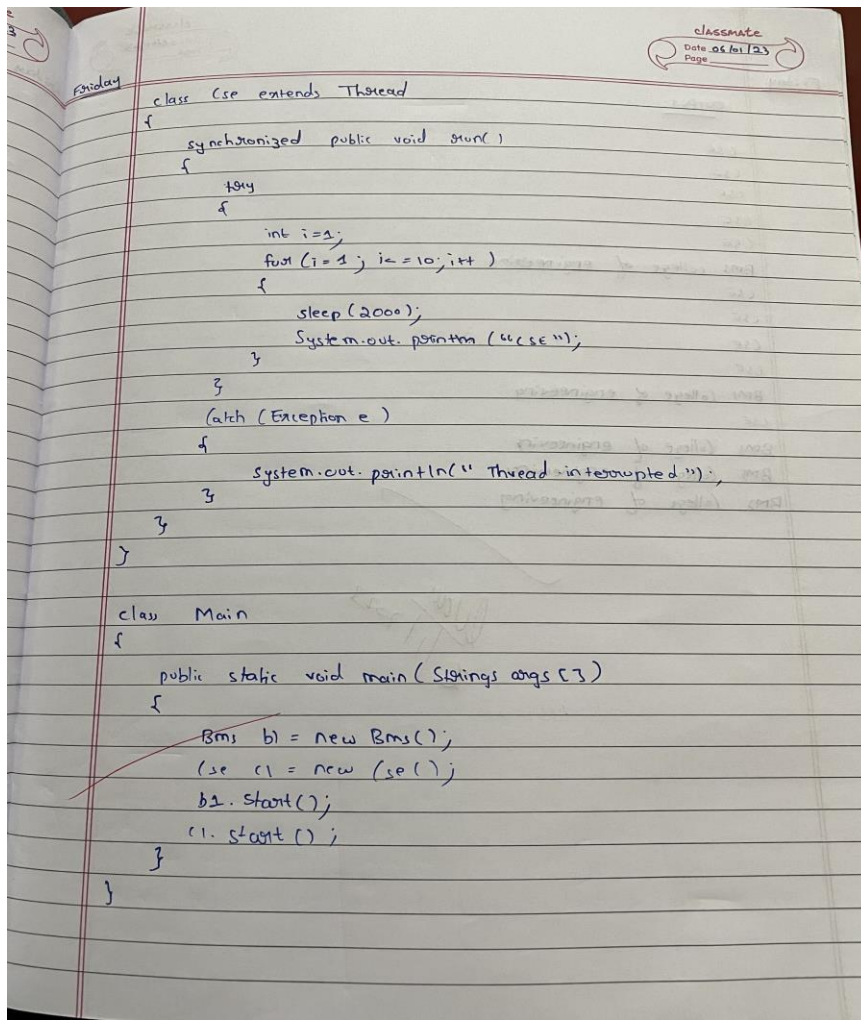 classmate
Date 06/01/23
Page
Friday
class Cse extends Thread
{
synchronized public void run()
{
try
{
int i=1;
for (i=1; i<=10; i++)
{
sleep(2000);
System.out.println ("CSE");
}
}
Catch (Exception e)
{
System.out.println(" Thread interrupted");
}
}
}
class Main
{
public static void main(Strings args[])
{
Bms b1 = new Bms();
Cse c1 = new Cse();
b1.start();
c1.start();
}
}